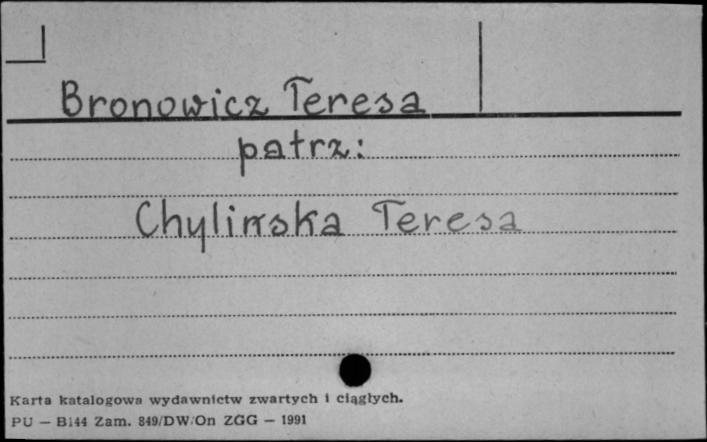 Bronowicz Teresa
patrz:
Chylińska Teresa
Karta katalogowa wydawnictw zwartych i ciągłych.
PU — B144 Zam. 849/DW/On ZGG — 1991